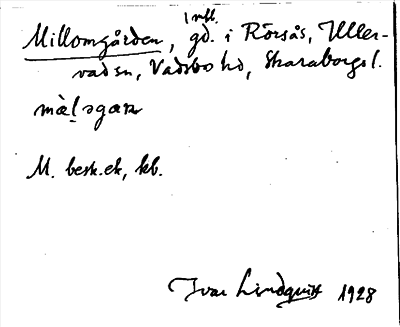 Millomgården, 1 mtl. gd. i Rörsås, Uller-
vad sn, Vadsbo hd, Skaraborgs l.
M. besk. ek, kb.
Ivar Lindquist 1928